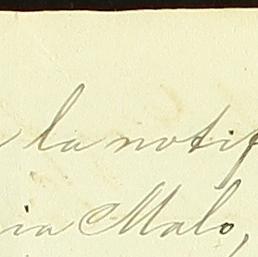 la notif
ia Malo,